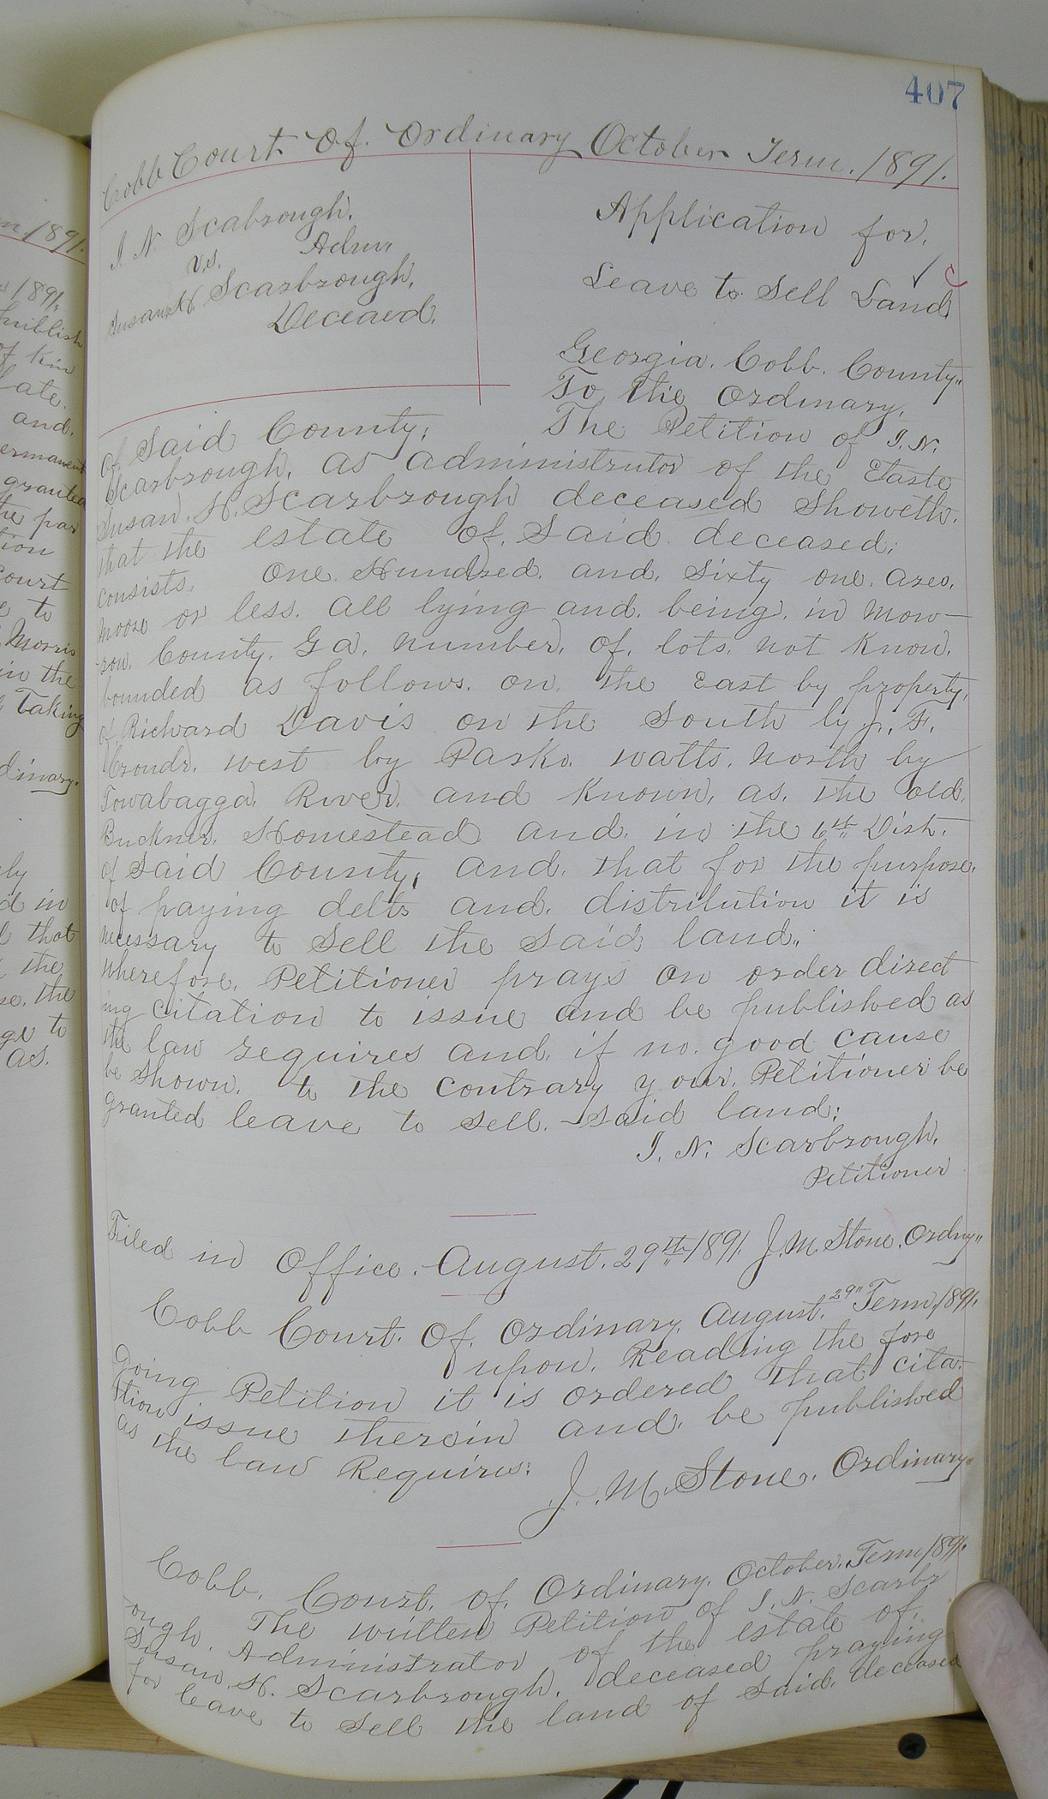 407
Cobb Court of Ordinary October Term. 1891.
I. N. Scabrough.
vs. Admr
Susan H. Scarbrough,
Deceasd.
Application for.
Leave to Sell Land
Georgia. Cobb. County"
To the Ordinary,
of Said County; The Petition of I. N.
Scarbrough. as administrator of the Etaste
Susan. H. Scarbrough deceased Showeth.
that the estate of. Said deceased;
consists. One. Hundred. and. Sixty one. acres.
moore or less. all lying and. being. in Mow-
row. County. Ga. number. of. lots. not Know.
bounded as follows. on. the East by property,
of Richard Davis on the South by J. F.
west by Parks. watts. North by
Towabagga. River. and Known. as. the old.
Buckner. Homestead and. in the 6th Dist.
of Said County, and. that for the purpose.
of paying debts and. distribution it is
necessary to Sell the said land..
wherefore. Petitioner prays an order direct
ing citation to issue and be published as
the law requires and. if no. good cause
be shown. to the contrary your. Petitioner be
granted leave to sell. said land;
I. N. Scarbrough.
Petitioner
Filed in Office. August. 29th 1891. J. M. Stone. Ordny"
Cobb Court. Of. Ordinary. August. 29" Term, 1891.
upon. Reading the fore
going Petition it is ordered that cita-
tion issue therein and. be published
as the law Requires:
J. M. Stone. Ordinary"
Cobb. Court. of. Ordinary. October. Term 1891.
The written Petition of I. N. Scarbr
ough. Administrator of the estate of.
Susan. H. Scarbrough. deceased praying
for leave to sell the land of said. deceased
n. 1891.
1891.
publish
of Kin
late.
and.
ermanent
granted
the par
tion
court
e to
Morris
in the
Taking
dinary.
ly
d in
that
the
se. the
ge to
as.